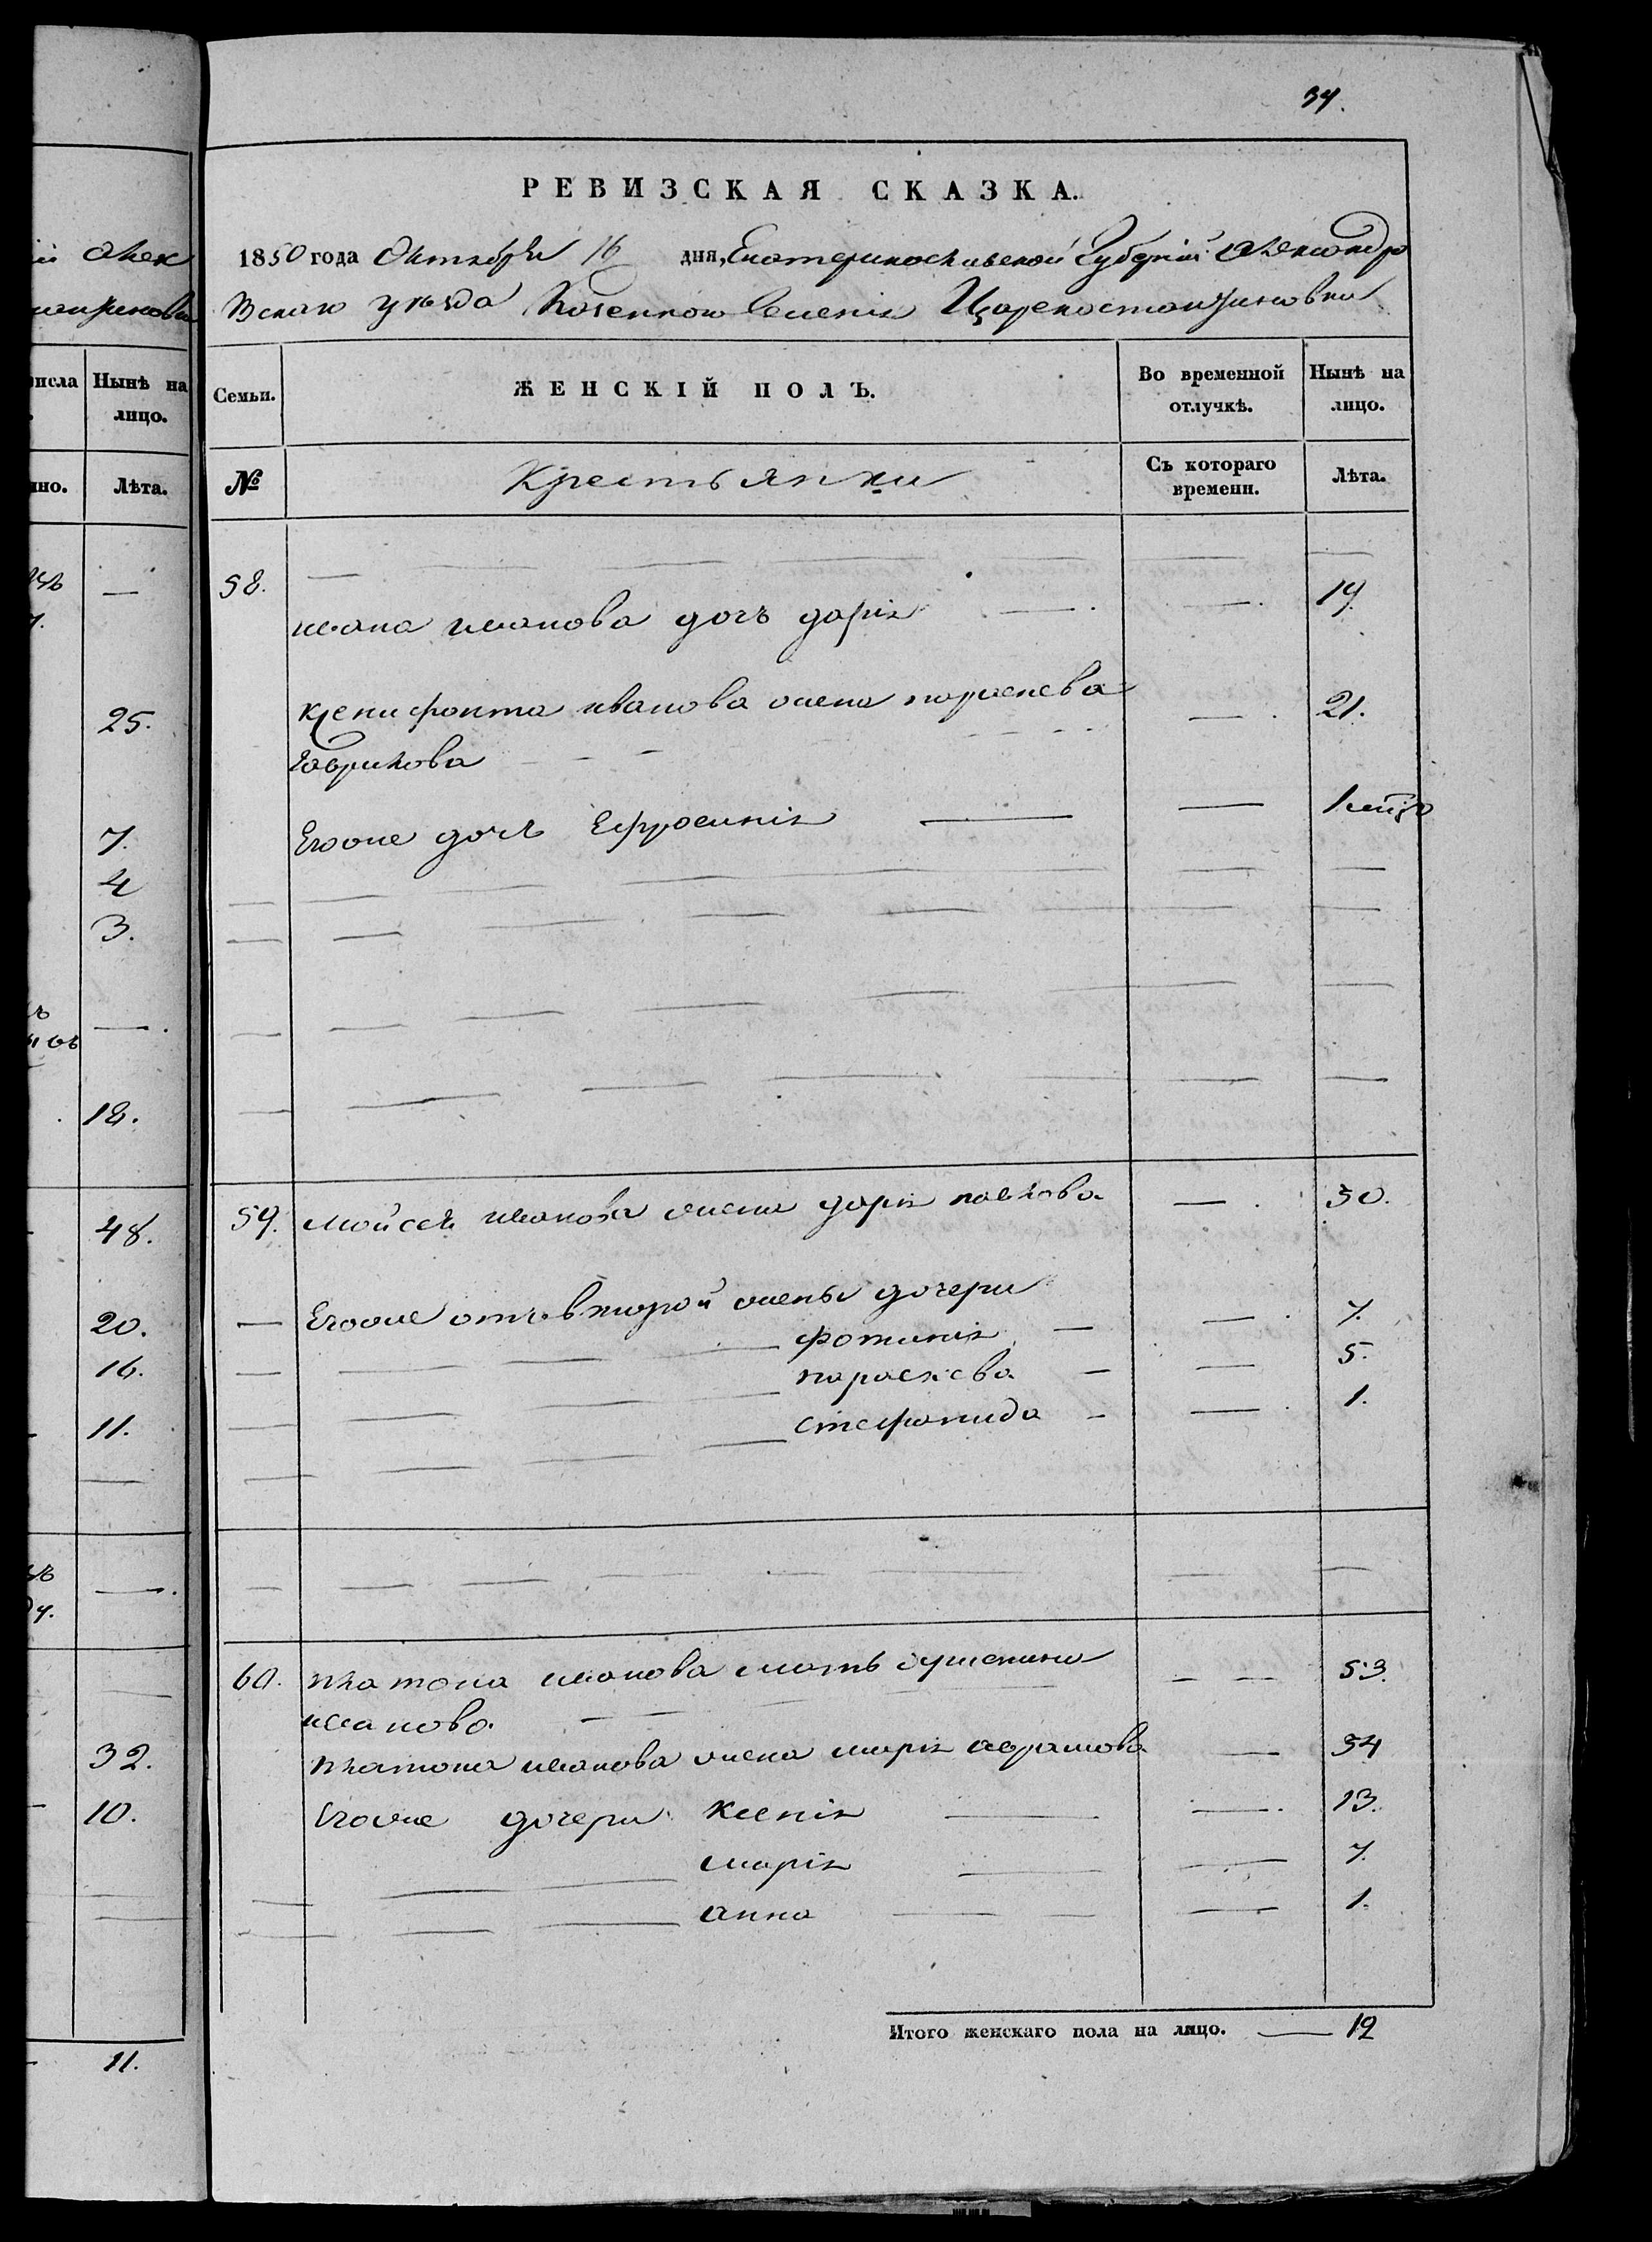 34.
РЕВИЗСКАЯ СКАЗКА.
1850 года Октября 16 дня, Екатеринославской Губерній Александро
вскаго уѣзда Казеннои Селенія Цареконстантиновки
Семьи. ЖЕНСКІЙ ПОЛЪ. Во временной отлучкѣ. Нынѣ на лицо.
№ Крестьянки Съ котораго времени. Лѣта.
58. ивана иванова дочъ дарія — 19.
Ксенифонта иванова жена параскева — 21.
Гаврилова
Егоже дочъ Ефросинія — 1
59. мойсея иванова жена даря павлова — 30.
— Егоже отъ второй жены дочери
фотинія — 7.
параскева — 5.
стефанида — 1.
60. платона иванова мать Іустинія — 53.
иванова
платона иванова жена марія аврамова — 34
Егоже дочери Ксенія — 13.
марія — 7.
анна — 1.
Итого женскаго пола на лицо. — 12
Алек
Нынѣ на лицо.
Лѣта.
—
25.
7.
4
3.
—
18.
48.
20.
16.
11.
—
32.
10.
11.